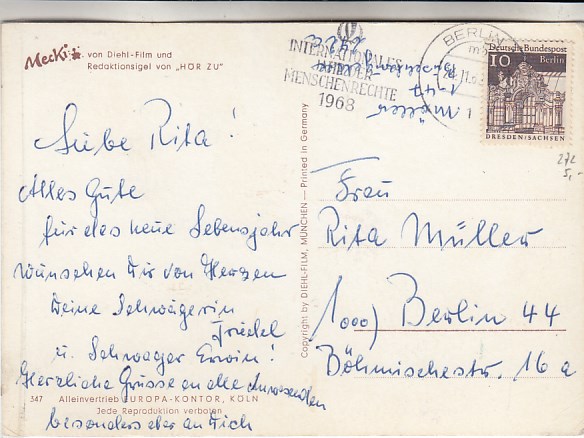 Mecki
von Diehl-Film und
Redaktionsigel von „HÖR ZU"
INTERNATIONALES
JAHR DER
MENSCHENRECHTE
1968
BERLIN
1
Deutsche Bundespost
10 Berlin
DRESDEN/SACHSEN
272
5,-
Müller
1-47
Liebe Rita!
Alles Gute
für das neue Lebensjahr
wünschen Dir von Herzen
Deine Schwägerin
Friedel
u. Schwager Erwin!
Herzliche Grüsse an alle Anwesenden
besonders aber an Dich
347 Alleinvertrieb EUROPA-KONTOR, KÖLN
Jede Reproduktion verboten
Copyright by DIEHL-FILM, MÜNCHEN — Printed in Germany
Frau
Rita Müller
1000) Berlin 44
Böhmischestr. 16a